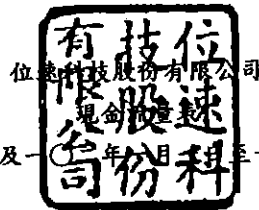 位速科技股份有限公司
現金量表
及一○年月至一
位速科
技股份
有限公司